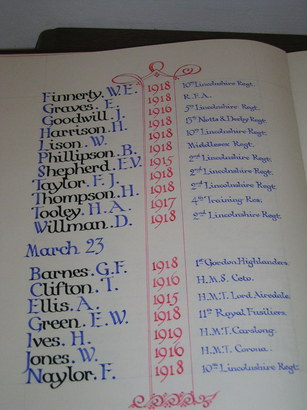 Finnerty. W.E. 1918 10th Lincolnshire Regt.
Graves. E. 1918 R.F.A.
Goodwill. J. 1916 5th Lincolnshire Regt.
Harrison. H. 1918 Notts & Derby Regt.
Lison. W. 1918 10th Lincolnshire Regt.
Phillipson. B. 1918 Middlesex Regt.
Shepherd. E.V. 1915 2nd Lincolnshire Regt.
Taylor. F. J. 1918 2nd Lincolnshire Regt.
Thompson. H. 1918 2nd Lincolnshire Regt.
Tooley. H. A. 1917 4th Training Res.
Willman. D. 1918 2nd Lincolnshire Regt.
March 23
Barnes. G.F. 1918 1st Gordon Highlanders.
Clifton. T. 1916 H.M.S.
Ellis. A. 1915 H.M.T. Lord Airedale.
Green. E.W. 1918 11th Royal Fusiliers.
Ives. H. 1919 H.M.T.
Jones. W. 1916 H.M.T. Corona.
Naylor. F. 1918 10th Lincolnshire Regt.